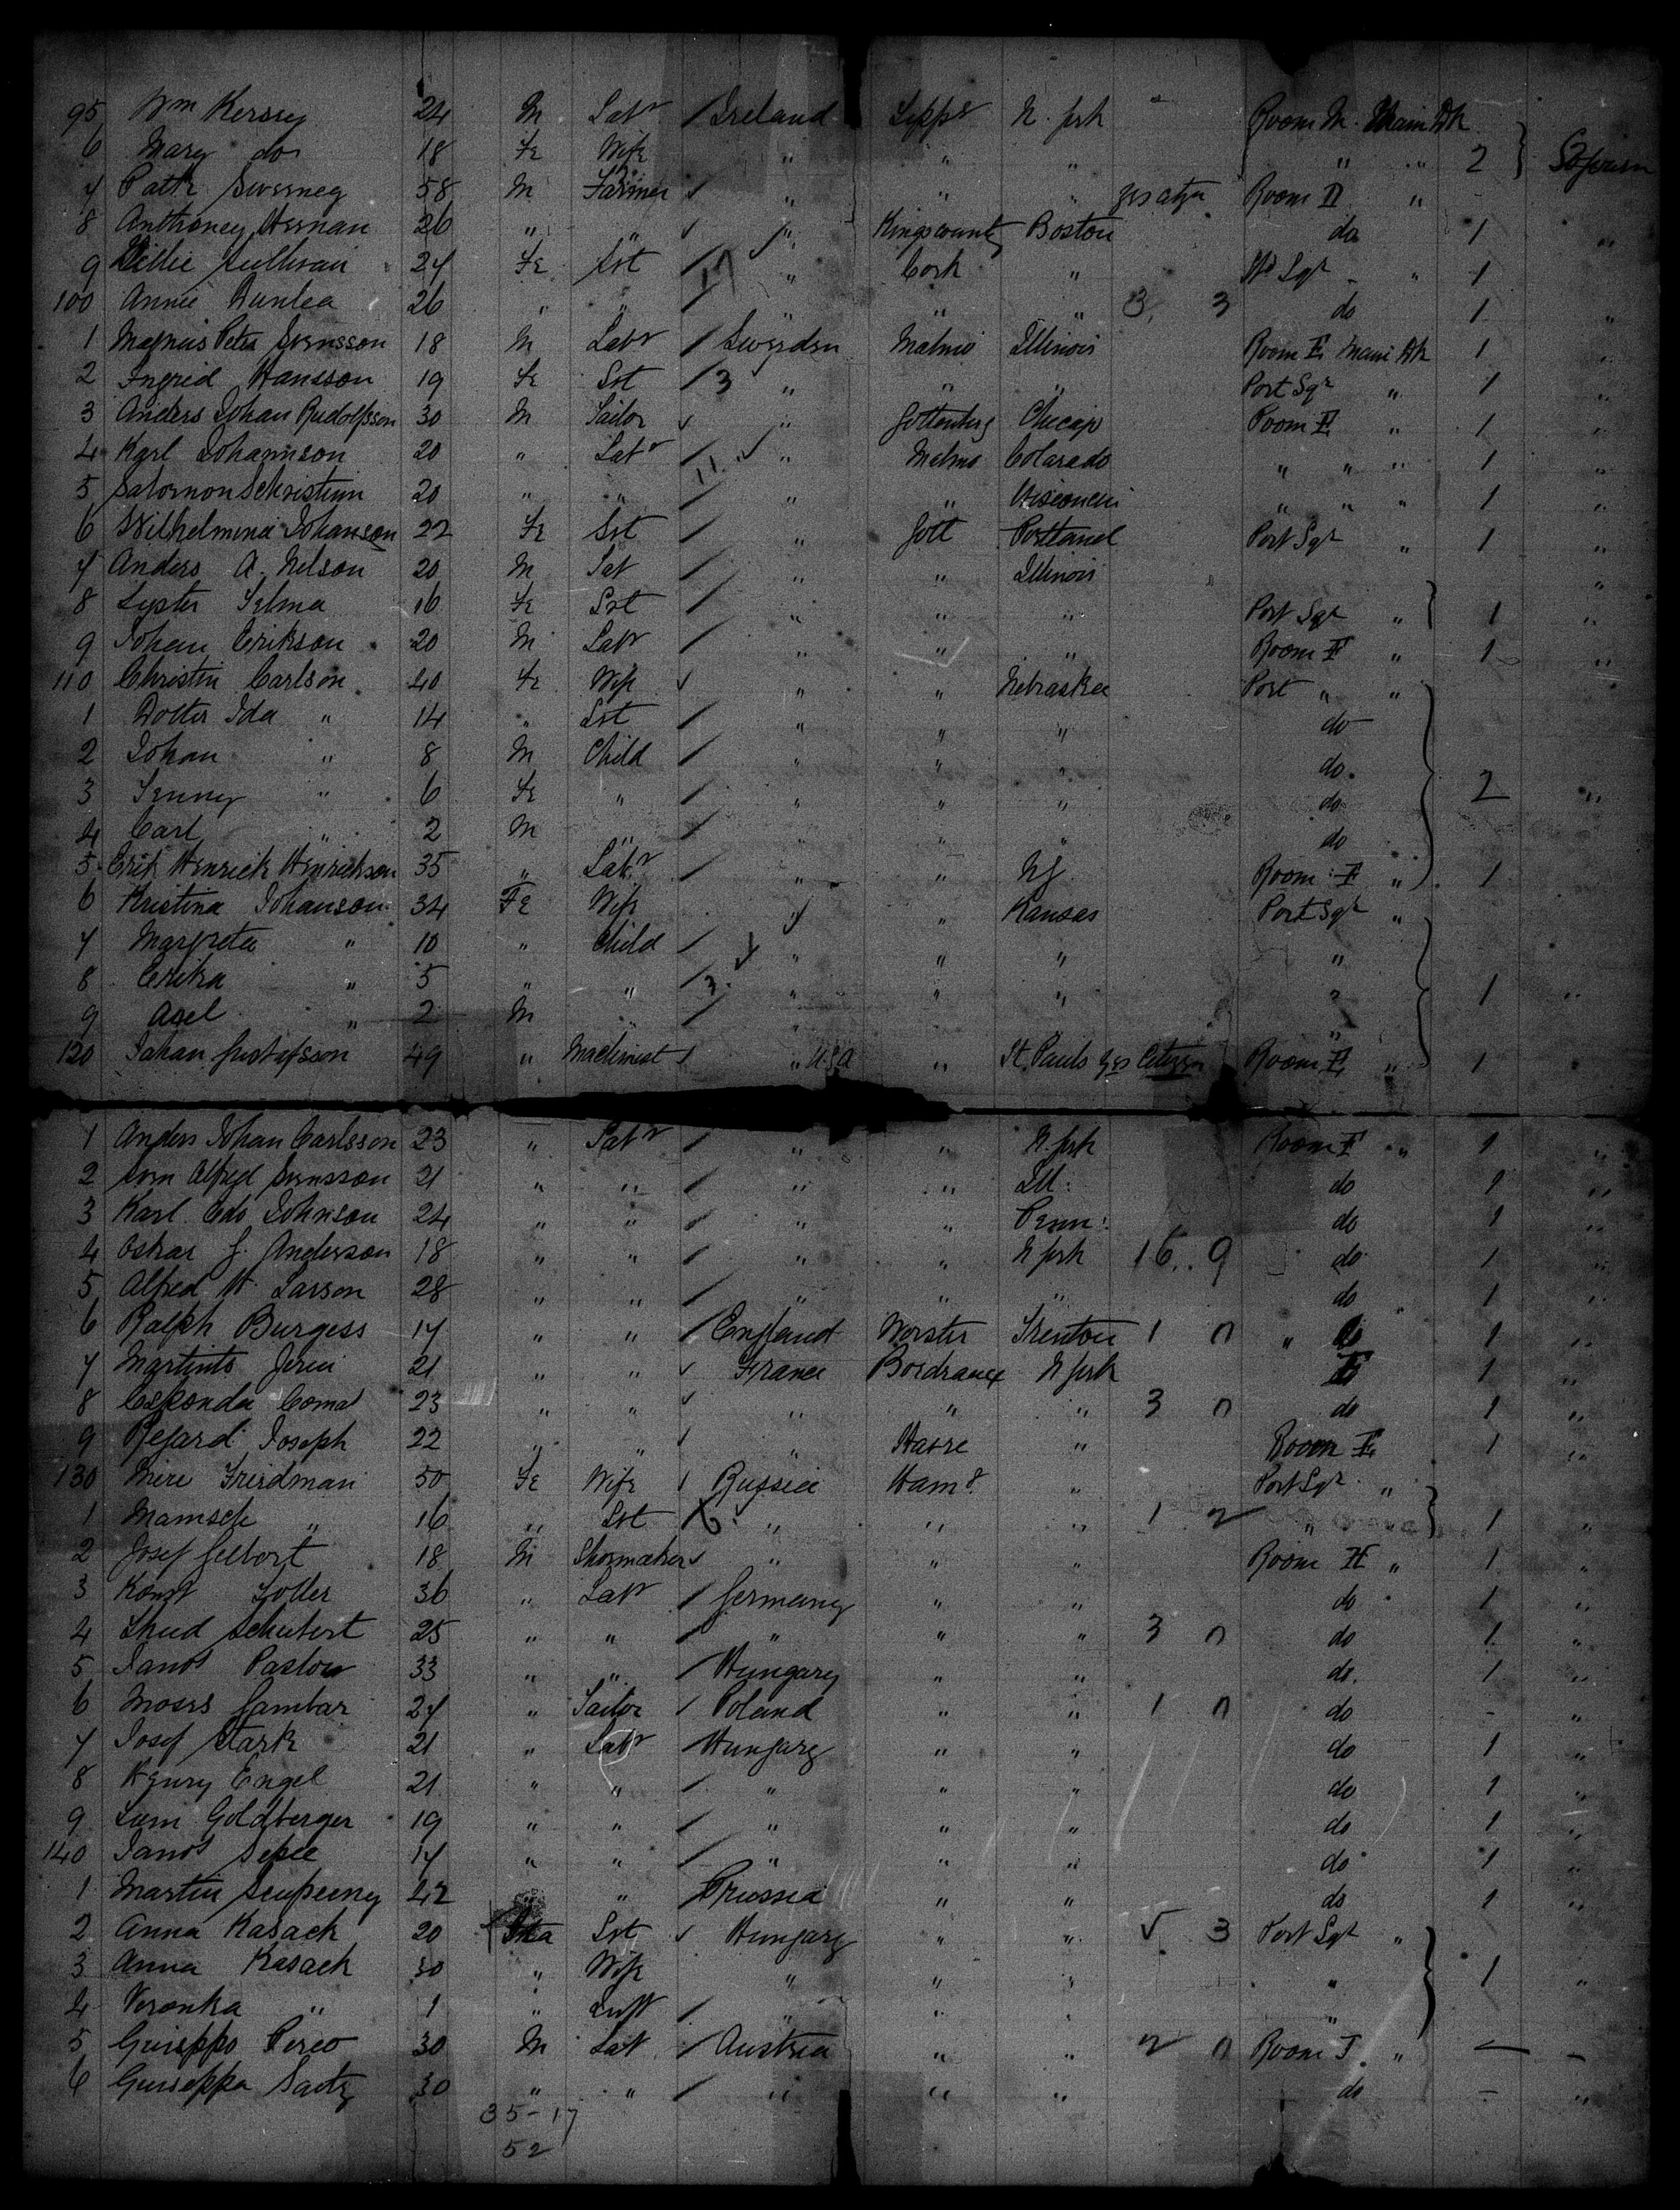 95 Wm Kersey 24 M Labr / Ireland Tippr N. York Room M. Main Dk
6 Mary do 18 Fe Wife " " " " " 2 } Bosperson
7 Patk Sweeney 58 M Farmer / " " " yes Room II "
8 Anthoney Hernan 26 " " / " Kingscounty Boston do 1 "
9 Lillie Sullivan 27 Fe Srt / 17 " Cork " Sqr " 1
100 Annie Dunlea 26 " " / " " " 3 3 do 1 "
1 Magnus Peter Svensson 18 M Labr / Sweeden Malmo Illinois Room E Main Dk 1 "
2 Ingrid Hansson 19 Fe Srt / 3 " " " Port Sqr " 1 "
3 Anders Johan Rudolfsson 30 M Tailor / " Gottenberg Chicago Room E " 1 "
4 Karl Johannson 20 " Labr / 11 " Malmo Colarado " " " 1 "
5 Salomon 20 " " / " " Wisconsin " " " 1 "
6 Wilhelmina Johanson 22 Fe Srt / " Gott Portland Port Sqr " 1 "
7 Anders A. Nelson 20 M Lab / " " Illinois "
8 Syster Selma 16 Fe Srt / " " " Port Sqr " } 1 "
9 Johan Erikson 20 M Labr / " " " Room E " 1 "
110 Christin Carlson 40 Fe Wife / " " Nebraska Port " "
1 Dotter Ida " 14 " Srt / " " " do
2 Johan " 8 M Child / " " " do
3 Jenny " 6 Fe " / " " " do 2 "
4 Carl " 2 M " / " " " do
5 Erik Henrick Henrickson 35 " Labr / " " NJ Room E " 1
6 Kristina Johanson 34 Fe Wife " " Kansas Port Sqr "
7 Margreta " 10 " Child / " " " "
8 Erika " 5 " " / 3 " " " " 1 "
9 Axel " 2 M " / " " " "
120 Johan Gustafsson 49 " Machinist / " USA " St. Pauls Yes Citizen Room E " 1
1 Anders Johan Carlsson 23 " Labr / " " N. York Room E " 1 "
2 Sven Alfred Svensson 21 " " / " " Ill: do 1 "
3 Karl Edo Johnson 24 " " / " " Penn: do 1 "
4 Oskar G. Anderson 18 " " / " " N York 16 .. 9 do 1 "
5 Alfred W. Larson 28 " " / " " " do 1 "
6 Ralph Burgess 17 " " / England Worster Trenton 1 0 " do 1 "
7 21 " " / France Bordraux N York E 1 "
8 23 " " / " " " 3 0 do 1 "
9 Joseph 22 " " / " Havre " Room E 1 "
130 Mire Friedman 50 Fe Wife / Russia Hamb. " Port Sqr "
1 Mamsch " 16 " Srt " " " 1 2 " } 1 "
2 Josef 18 M Shoemaker / " " " Room H " 1 "
3 36 " Labr / Germany " " do 1 "
4 Schubert 25 " " / " " " 3 0 do 1 "
5 Janos Pastow 33 " " / Hungary " " do. 1 "
6 Moses Gambar 27 " Tailor / Poland " " 1 0 do - "
7 Josef Stark 21 " Labr / Hungary " " do 1 "
8 Henry Engel 21 " " / " " " do 1 "
9 Sam Goldberger 19 " " / " " " do 1 "
140 Janos 17 " " / " " " do 1 "
1 Martin 42 " " / Prussia " " do 1 "
2 Anna Kasack 20 Srt / Hungary " " 3 Port Sqr "
3 Anna Kasack 30 " Wife " " " " 1 "
4 Veronka " 1 " Inft / " " " "
5 Guiseppo Perco 30 M Lab / Austria " " 2 0 Room J. " - -
6 Guiseppa 30 " " / " " " do - "
35-17
52